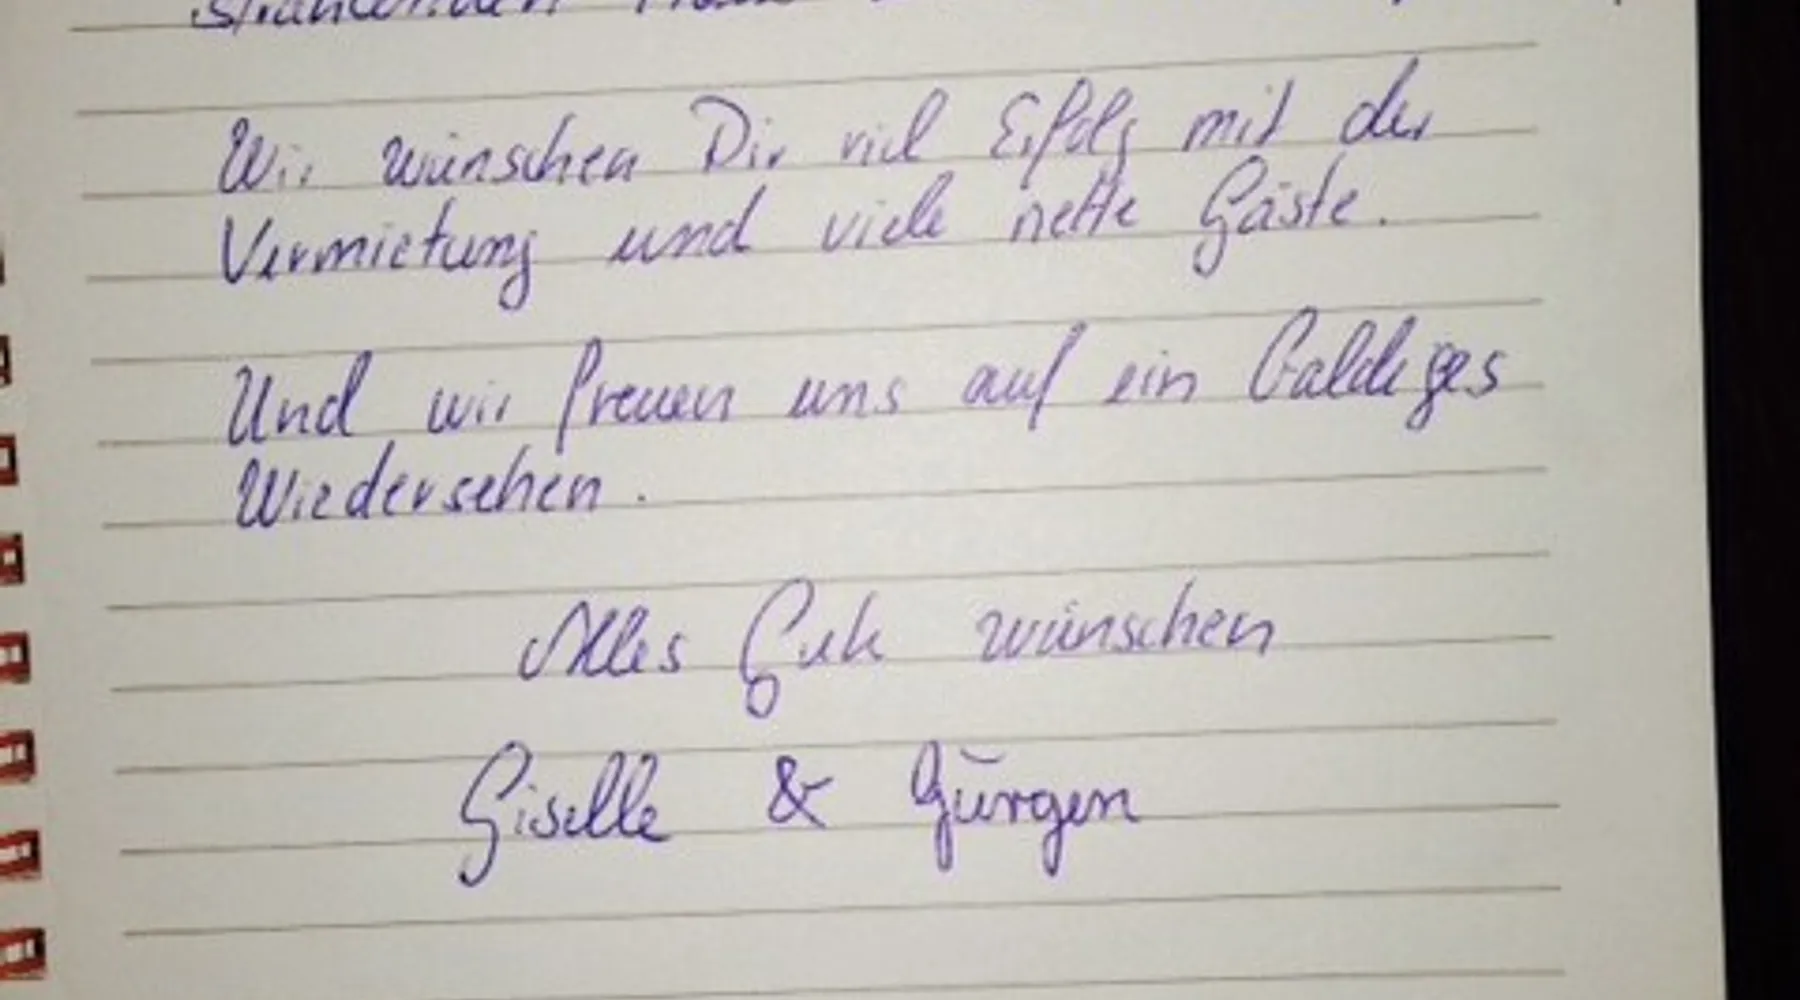 strahlenden
Wir wünschen Dir viel Erfolg mit der
Vermietung und viele nette Gäste.
Und wir freuen uns auf ein baldiges
Wiedersehen.
Alles Gute wünschen
Giselle & Jürgen